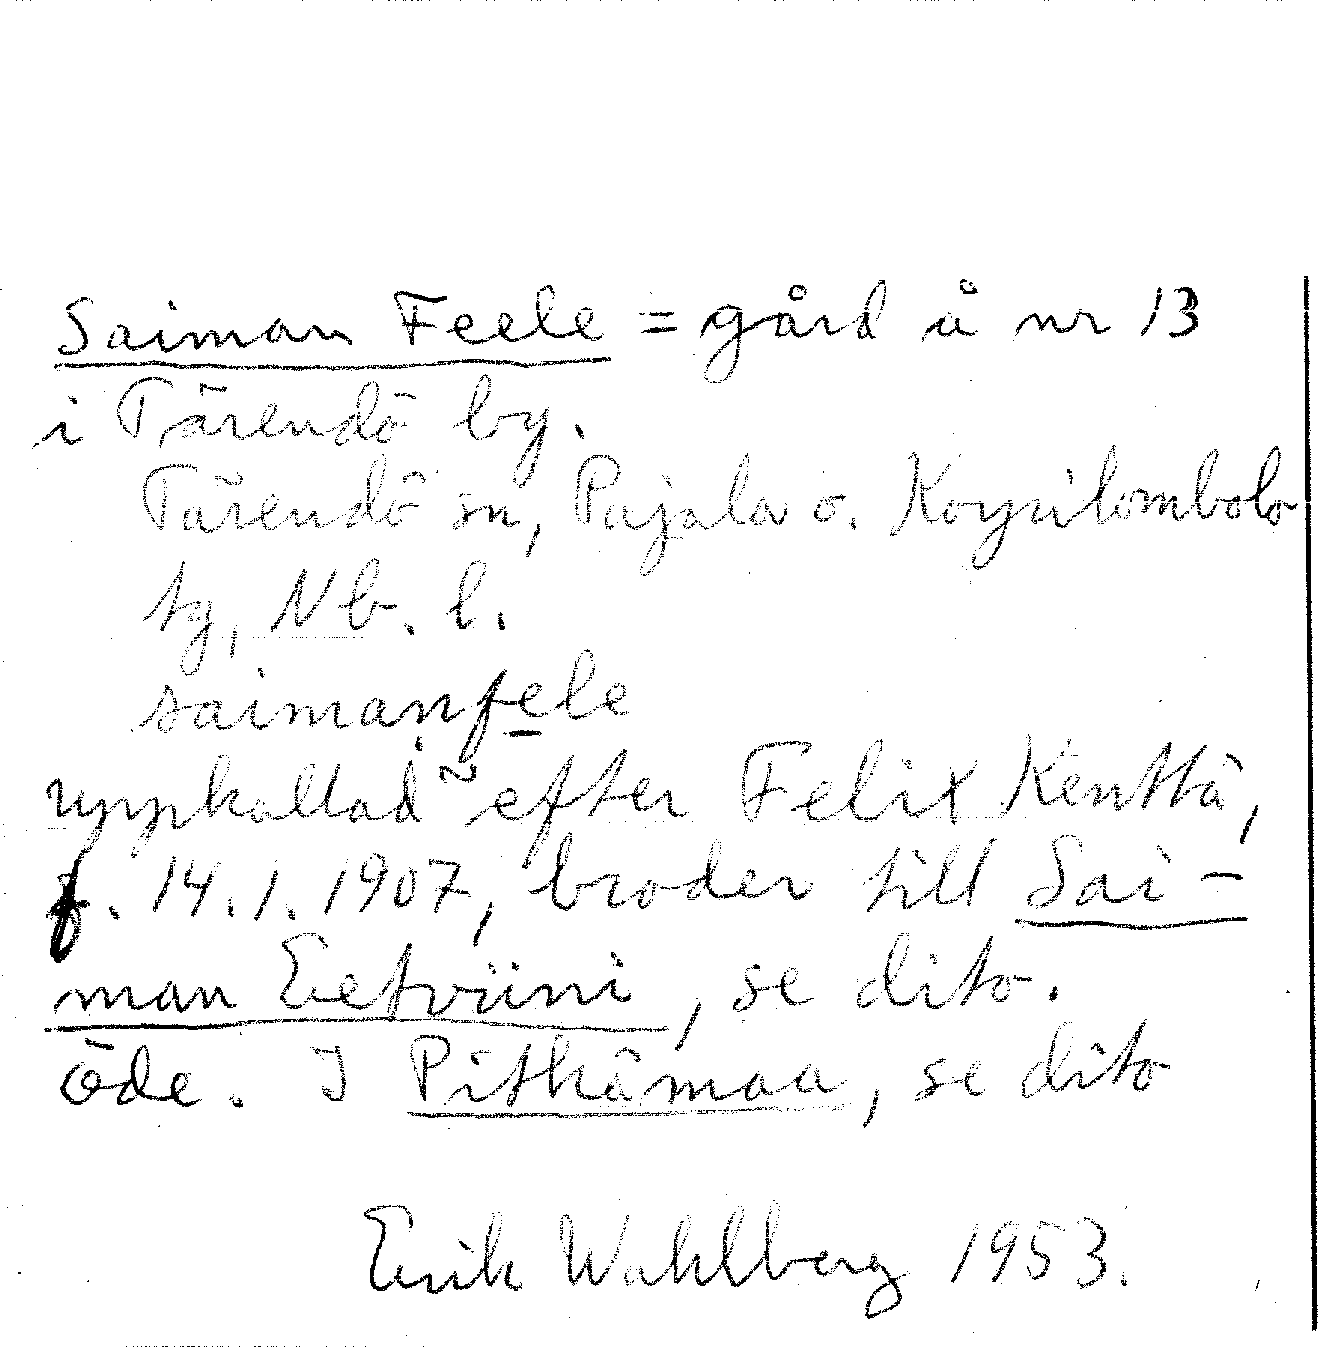 Saiman Feele = gård å nr 13
i Tärendö by.
Tärendö sn, Pajala o. Korpilombolo
tg, Nb. l.
saimanfele
uppkallad efter Felix Kenttä,
f. 14.1.1907, broder till Sai-
man Eetviini, se dito.
öde. I Pitkämaa, se dito
Erik Wahlberg 1953.